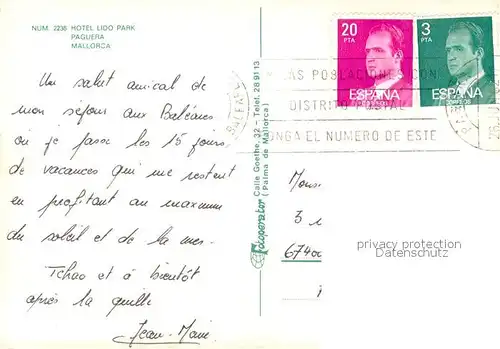 NUM. 2236 HOTEL LIDO PARK
PAGUERA
MALLORCA
Un salut amical de
mon séjour aux Baléares
où je passe les 15 jours
de vacances qui me restent
en profitant au maximum
du soleil et de la mer.
Tchao et à bientôt
après la quille
Jean-Marie
Fotoperator
Calle Goethe, 32 - Telef. 28 91 13
( Palma de Mallorca )
20
PTA
ESPAÑA
CORREOS
3
PTA
ESPAÑA
CORREOS
LAS POBLACIONES CON
DISTRITO POSTAL
PONGA EL NUMERO DE ESTE
BALEARES
Mons
3
6740
privacy protection
Datenschutz